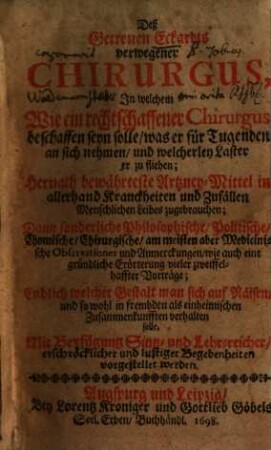 Deß
Getreuen Eckarths
verwegener
CHIRURGUS,
In welchem
Wie ein rechtschaffener Chirurgus
beschaffen seyn solle/was er für Tugenden
an sich nehmen/und welcherley Laster
er zu fliehen;
Hernach bewährteste Artzney-Mittel in
allerhand Kranckheiten und Zufällen
Menschlichen Leibes zugebrauchen;
Dann sonderliche Philosophische/Politische/
Chymische/Chirurgische/am meisten aber Medicini-
sche Observationes und Anmerckungen/wie auch eine
gründliche Erörterung vieler zweiffel-
haffter Vorträge;
Endlich welcher Gestalt man sich auf Räisen/
und so wohl in frembden als einheimischen
Zusammenkunfften verhalten
solle.
Mit Beyfügung Sinn- und Lehrreicher/
erschröcklicher und lustiger Begebenheiten
vorgestellet werden.
Augspurg und Leipzig/
Bey Lorentz Kroniger und Gottlieb Göbels
Seel. Erben/Buchhändl. 1698.